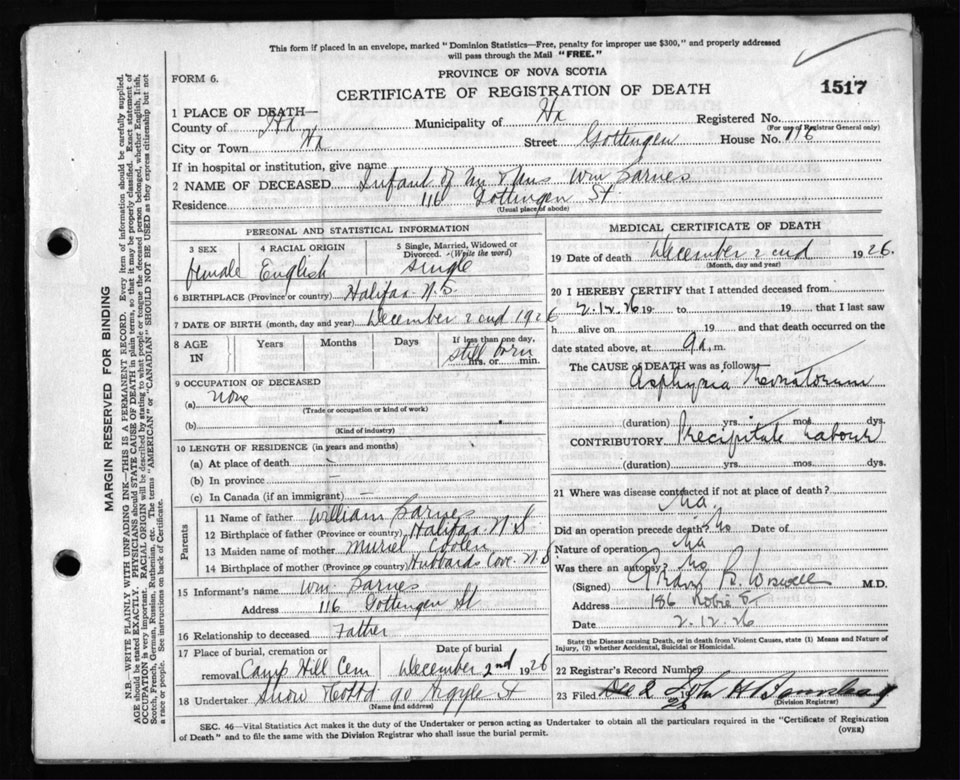 This form if placed in an envelope, marked "Dominion Statistics—Free, penalty for improper use $300," and properly addressed
will pass through the Mail "FREE."
FORM 6.
PROVINCE OF NOVA SCOTIA
CERTIFICATE OF REGISTRATION OF DEATH
1517
1 PLACE OF DEATH—
County of Hx Municipality of Hx Registered No.
(For use of Registrar General only)
City or Town Hx Street Gottingen House No. 116
If in hospital or institution, give name
2 NAME OF DECEASED Infant of Mr & Mrs Wm Barnes
Residence 116 Gottingen St
(Usual place of abode)
PERSONAL AND STATISTICAL INFORMATION
3 SEX female
4 RACIAL ORIGIN English
5 Single, Married, Widowed or Divorced. (Write the word) single
6 BIRTHPLACE (Province or country) Halifax N.S.
7 DATE OF BIRTH (month, day and year) December 2nd 1926
8 AGE IN Years Months Days If less than one day, hrs. or min. still born
9 OCCUPATION OF DECEASED
(a) none
(Trade or occupation or kind of work)
(b)
(Kind of industry)
10 LENGTH OF RESIDENCE (in years and months)
(a) At place of death
(b) In province —
(c) In Canada (if an immigrant) —
Parents
11 Name of father William Barnes
12 Birthplace of father (Province or country) Halifax N S
13 Maiden name of mother Muriel Coolen
14 Birthplace of mother (Province or country) Hubbards Cove N.S
15 Informant's name Wm. Barnes
Address 116 Gottingen St
16 Relationship to deceased Father
17 Place of burial, cremation or removal Camp Hill Cem Date of burial December 2nd 1926
18 Undertaker Snow Co Ltd 90 Argyle St
(Name and address)
MEDICAL CERTIFICATE OF DEATH
19 Date of death December 2nd 1926.
(Month, day and year)
20 I HEREBY CERTIFY that I attended deceased from
2.12.26 19 to 19 that I last saw
h alive on 19 and that death occurred on
date stated above, at 9 a. m.
The CAUSE of DEATH was as follows:
Asphyxia Neonatorum
(duration) yrs. mos. dys.
CONTRIBUTORY Precipitate Labour
(duration) yrs. mos. dys.
21 Where was disease contracted if not at place of death?
Na.
Did an operation precede death? No Date of
Nature of operation Na
Was there an autopsy? No
(Signed) B. Woswell M.D.
Address 186 Robie St
Date 2.12.26
State the Disease causing Death, or in death from Violent Causes, state (1) Means and Nature of
Injury, (2) whether Accidental, Suicidal or Homicidal.
22 Registrar's Record Number
23 Filed Dec 2 19 26 John H
(Division Registrar)
SEC. 46—Vital Statistics Act makes it the duty of the Undertaker or person acting as Undertaker to obtain all the particulars required in the "Certificate of Registration
of Death" and to file the same with the Division Registrar who shall issue the burial permit.
(OVER)
MARGIN RESERVED FOR BINDING
N.B.—WRITE PLAINLY WITH UNFADING INK—THIS IS A PERMANENT RECORD. Every item of information should be carefully supplied.
AGE should be stated EXACTLY. PHYSICIANS should STATE CAUSE OF DEATH in plain terms, so that it may be properly classified. Exact statement of
OCCUPATION is very important. RACIAL ORIGIN will be described by stating to what people or tongue the deceased person belonged, whether English, Irish,
Scotch, French, German, Russian, Ruthenian, etc. The terms "AMERICAN" or "CANADIAN" SHOULD NOT BE USED as they express citizenship but not
a race or people. See instructions on back of Certificate.